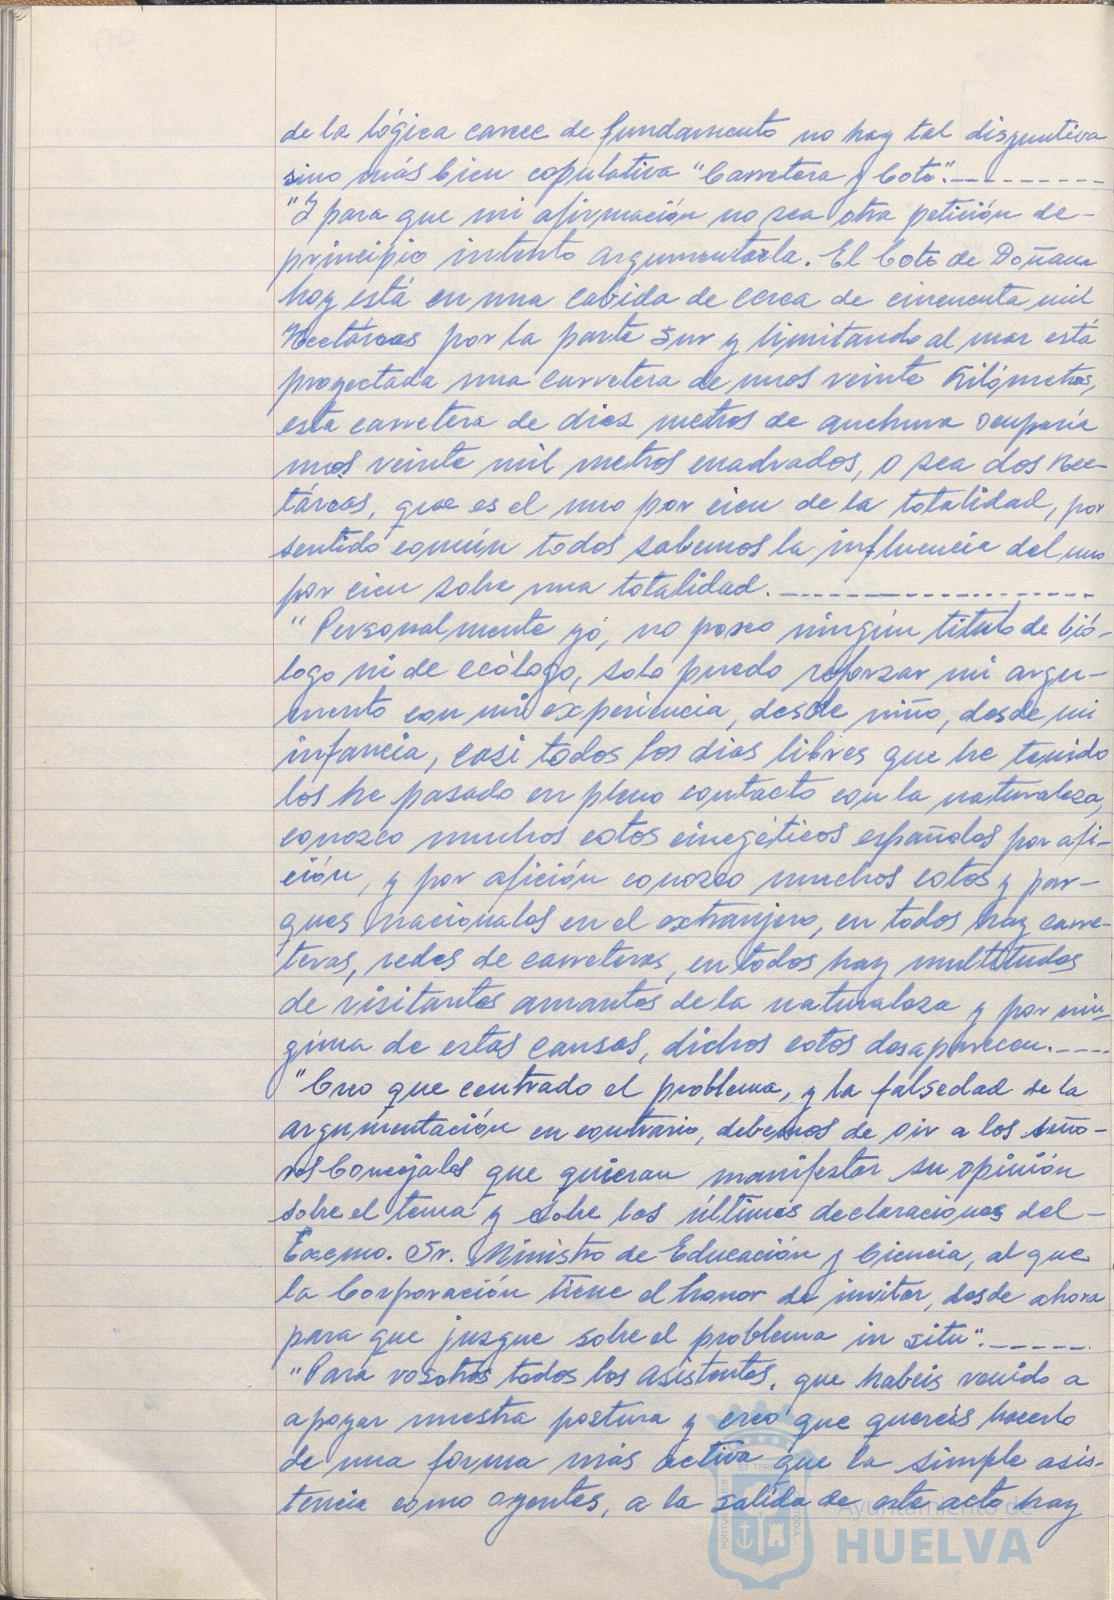 de la lógica carece de fundamento no hay tal disyuntiva
sino más bien copulativa "Carretera y Coto".----------
"Y para que mi afirmación no sea otra petición de-
principio intento argumentarla. El Coto de Doñana
hoy está en una cabida de cerca de cincuenta mil
Hectáreas por la parte Sur y limitando al mar está
proyectada una carretera de unos veinte Kilómetros,
esta carretera de diez metros de anchura ocuparía
unos veinte mil metros cuadrados, o sea dos Hec-
táreas, que es el uno por cien de la totalidad, por
sentido común todos sabemos la influencia del uno
por cien sobre una totalidad.--------------------
"Personalmente yó, no poseo ningún titulo de bió-
logo ni de ecólogo, solo puedo reforzar mi argu-
mento con mi experiencia, desde niño, desde mi
infancia, casi todos los dias libres que he tenido
los he pasado en pleno contacto con la naturaleza,
conozco muchos cotos cinegéticos españoles por afi-
ción, y por afición conozco muchos cotos y par-
ques nacionales en el extranjero, en todos hay carre-
teras, redes de carreteras, en todos hay multitudes
de visitantes amantes de la naturaleza y por nin-
guna de estas causas, dichos cotos desaparecen.----
"Creo que centrado el problema, y la falsedad de la
argumentación en contrario, debemos de oir a los seño-
res Concejales que quieran manifestar su opinión
sobre el tema y sobre las últimas declaraciones del-
Excmo. Sr. Ministro de Educación y Ciencia, al que
la Corporación tiene el honor de invitar, desde ahora
para que juzgue sobre el problema in situ".------
"Para vosotros todos los asistentes, que habeis venido a
apoyar nuestra postura y creo que quereis hacerlo
de una forma más activa que la simple asis-
tencia como oyentes, a la salida de este acto hay
Ayuntamiento de
HUELVA